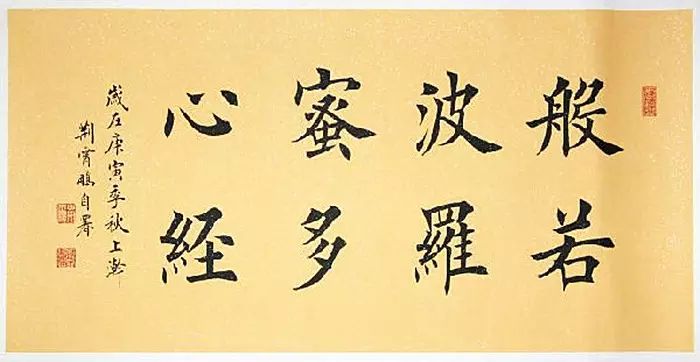 般若
波羅
蜜多
心経
歲在庚寅季秋上澣
荆霄鵬自署